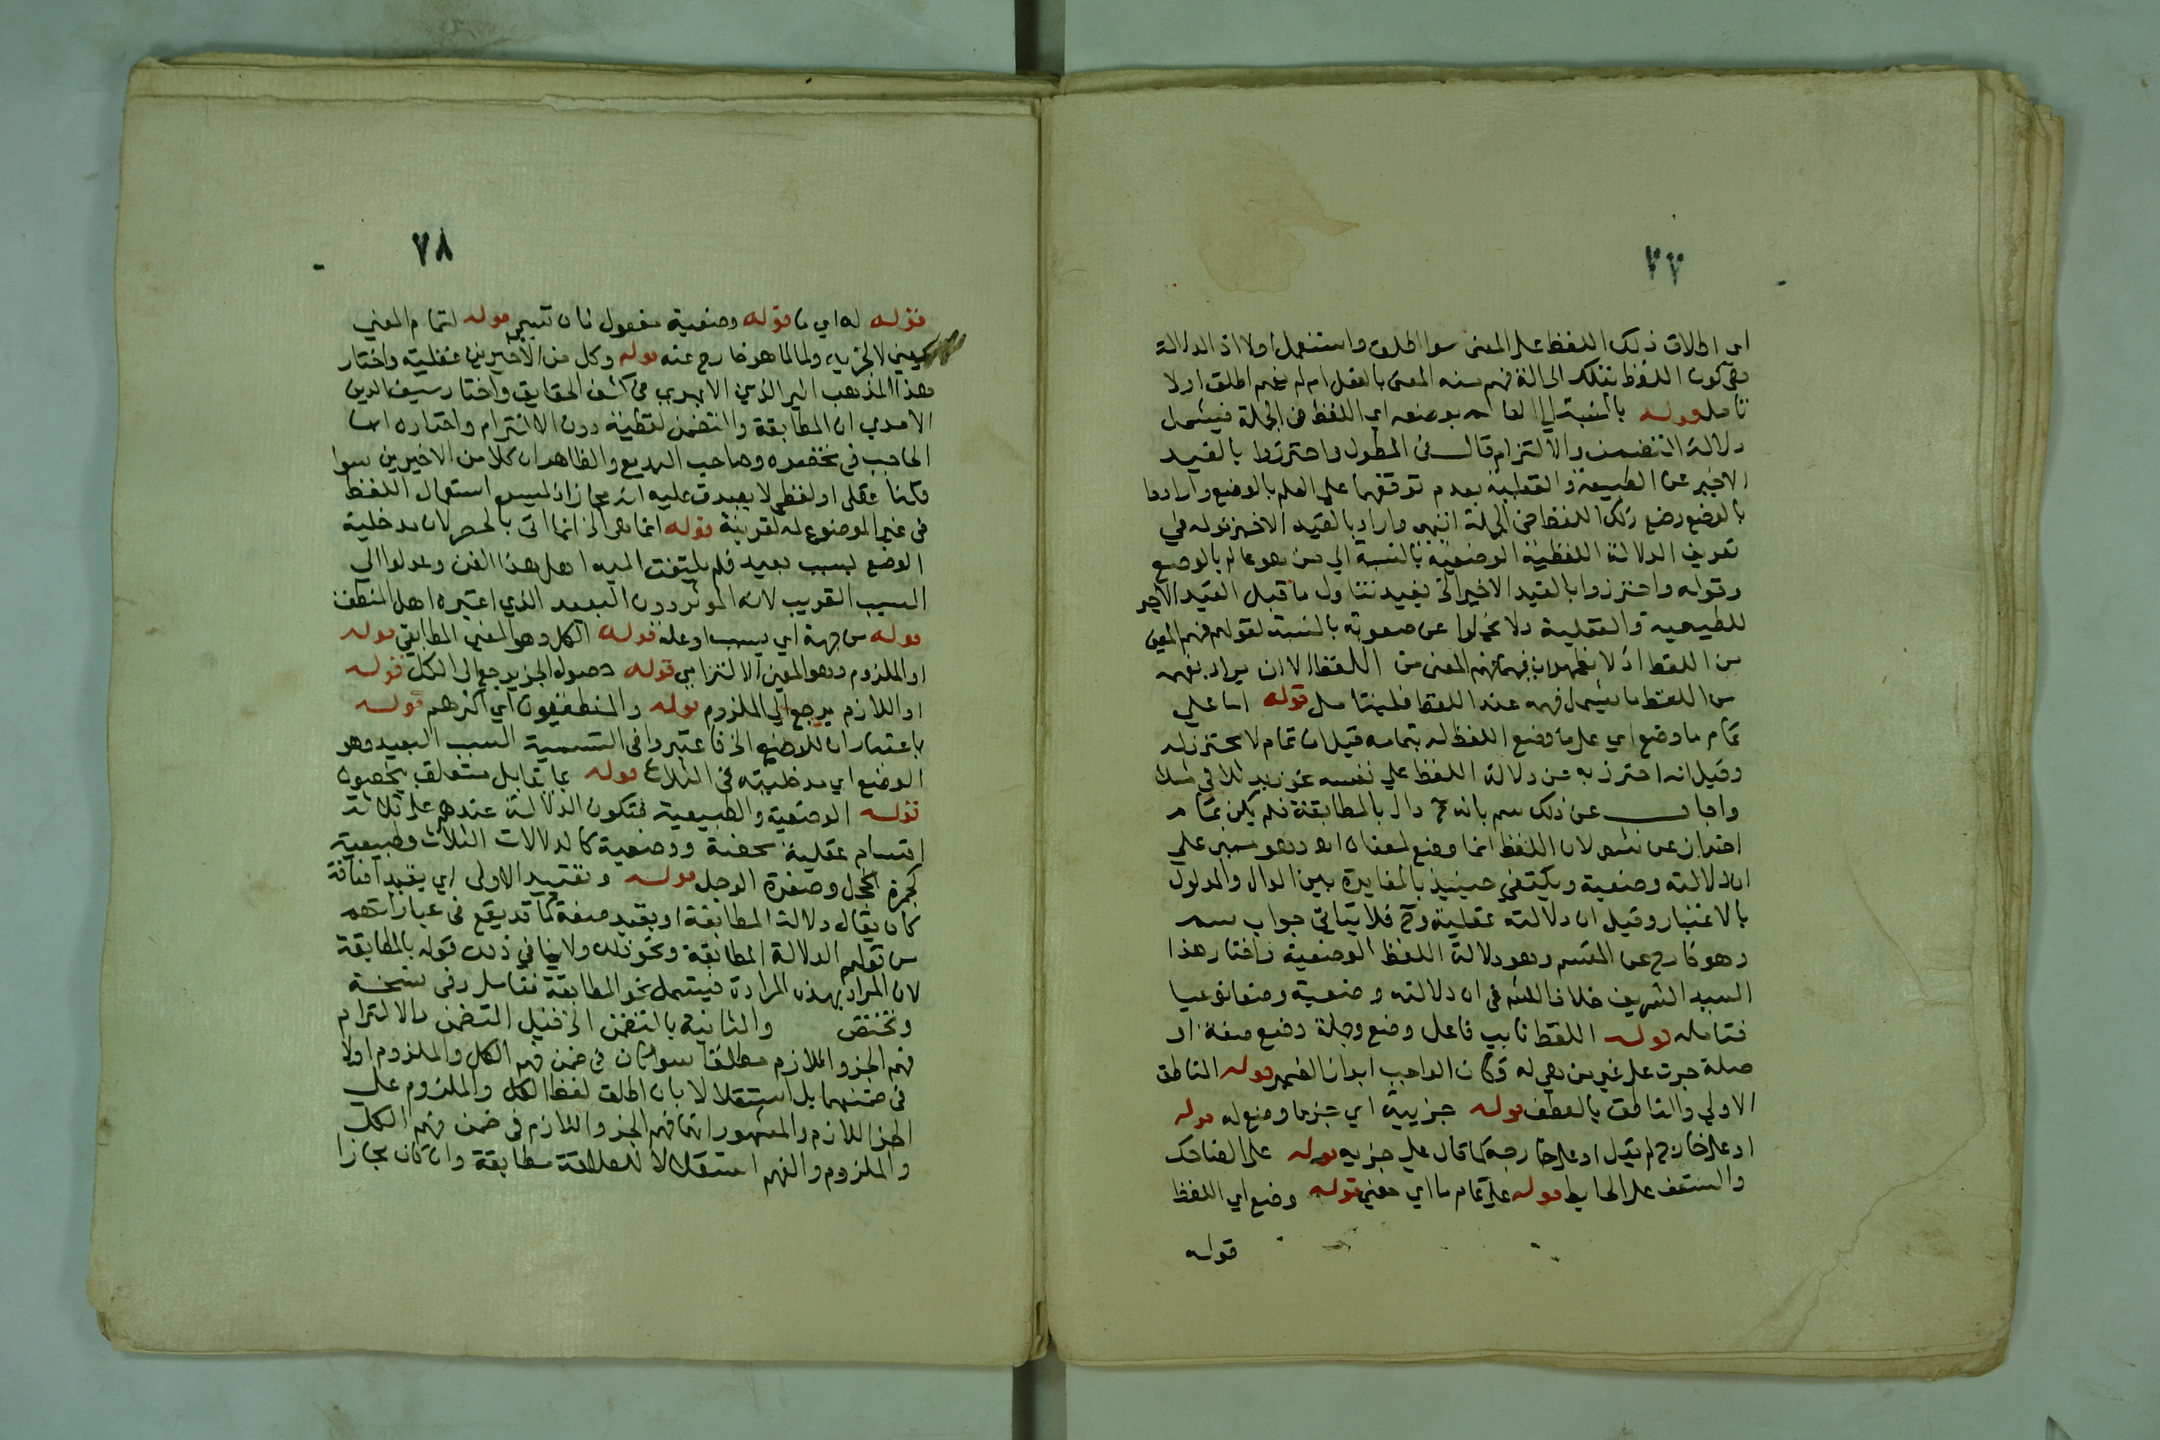 ٧٧
اي اطلاق ذلك اللفظ على المعنى سوا اطلق واستعمل اولا اذ الدلالة
هي كون اللفظ بتلك الحالة فهم منه المعنى بالفعل ام لم يفهم اطلق اولا
تامل قوله بالنسبة الي العالم بوضعه اي اللفظ في الجملة فيشمل
دلالة التضمن والالتزام قال في المطول واحترزوا بالقيد
الاخير عن الطبيعية والعقلية لعدم توقفهما على العلم بالوضع وارادوا
بالوضع وضع ذلك اللفظ في الجملة انتهى واراد بالقيد الاخير قوله في
تعريف الدلالة اللفظية الوضعية بالنسبة الي من هو عالم بالوضع
وقوله واحترزوا بالقيد الاخير الخ يفيد تناول ما قبل القيد الاخير
للطبيعية والعقلية ولا يخلوا عن صعوبة بالنسبة لقولهم فهم المعنى
من اللفظ اذ لا يظهر ان فيهما فهم المعنى من اللفظ الا ان يراد بفهمه
من اللفظ ما يشمل فهمه عند اللفظ فليتامل قوله اما على
تمام ما وضع اي على ما وضع اللفظ له بتمامه قيل ان تمام لا يحترز به
وقيل انه احترز به عن دلالة اللفظ علي نفسه نحو زيد ثلاثي مثلا
واجاب عن ذلك سم بانه ح دال بالمطابقة فلم يكن بتمام
احتراز عن شي لان اللفظ انما وضع لمعناه اه وهو مبني علي
ان دلالته وضعية ويكتفي حينيذ بالمغايرة بين الدال والمدلول
بالاعتبار وقيل ان دلالته عقلية وح فلا يتاتي جواب سم
وهو خارج عن المقسم وهو دلالة اللفظ الوضعية واختار هذا
السيد الشريف خلافا للشم في ان دلالته وضعية وضعا نوعيا
فتامله قوله اللفظ نايب فاعل وضع وجملة وضع صفة او
صلة جرت على غير من هي له وكان الواجب ابراز الضمير قوله الناطق
الاولي والناطق بالعطف قوله جزييه اي جز ما وضع له قوله
او على خارج لم يقل او على خارجه كما قال علي جزيه قوله على الضاحك
والسقف على الحايط قوله على تمام ما اي معني قوله وضع اي اللفظ
قوله
٧٨
قوله له اي ما قوله وضعية مفعول ثان تسمى قوله لتمام المعني
يعني لا لجزيه ولا لما هو خارج عنه قوله وكل من الاخيرين عقلية واختار
هذا المذهب اثير الدين الابهري في كشف الحقايق واختار سيف الدين
الامدي ان المطابقة والتضمن لفظية دون الالتزام واختاره ابن
الحاجب في مختصره وصاحب البديع والظاهر ان كلا من الاخيرين سوا
قلنا عقلي او لفظي لا يصدق عليه انه مجاز اذ ليس استعمال اللفظ
في غير الموضوع له لقرينة قوله انما هي الخ انما اتى بالحصر لان مدخلية
الوضع لسبب بعيد فلم يلتفت اليه اهل هذا الفن وعدلوا الي
السبب القريب لانه الموثر دون البعيد الذي اعتبره اهل المنطق
قوله من جهة اي سبب او علة قوله الكل وهو المعني المطابقي قوله
او الملزوم وهو المعني الالتزامي قوله حصول الجز يرجع الى الكل قوله
او اللازم يرجع الي الملزوم قوله والمنطقيون اي اكثرهم قوله
باعتبار ان للوضع الخ فاعتبروا في التسمية السبب البعيد وهو
الوضع اي مدخليته في الثلاثة قوله بما يقابل متعلق بخصوا
قوله الوضعية والطبيعية فتكون الدلالة عندهم على ثلاثة
اقسام عقلية محضة ووضعية كالدلالات الثلاث وطبيعية
كحمرة الخجل وصفرة الوجل قوله وتقيد الاولى اي بقيد اضافة
كان يقال دلالة المطابقة او بقيد صفة كما قد يقع في عباراتهم
من قولهم الدلالة المطابقة ونحو ذلك ولا ينافي ذلك قوله بالمطابقة
لان المراد بهذه المرادة فيشمل نحو المطابقة فتامل وفي نسخة
وتختص والثانية بالتضمن الخ فقيل التضمن والالتزام
فهم الجز واللازم مطلقا سوا كان في ضمن فهم الكل والملزوم اولا
في ضمنهما بل استقلالا بان اطلق لفظ الكل والملزوم علي
الجز اللازم والمشهور انها فهم الجز واللازم في ضمن فهم الكل
والملزوم والفهم استقلالا للعلاقة مطابقة وان كان مجازا